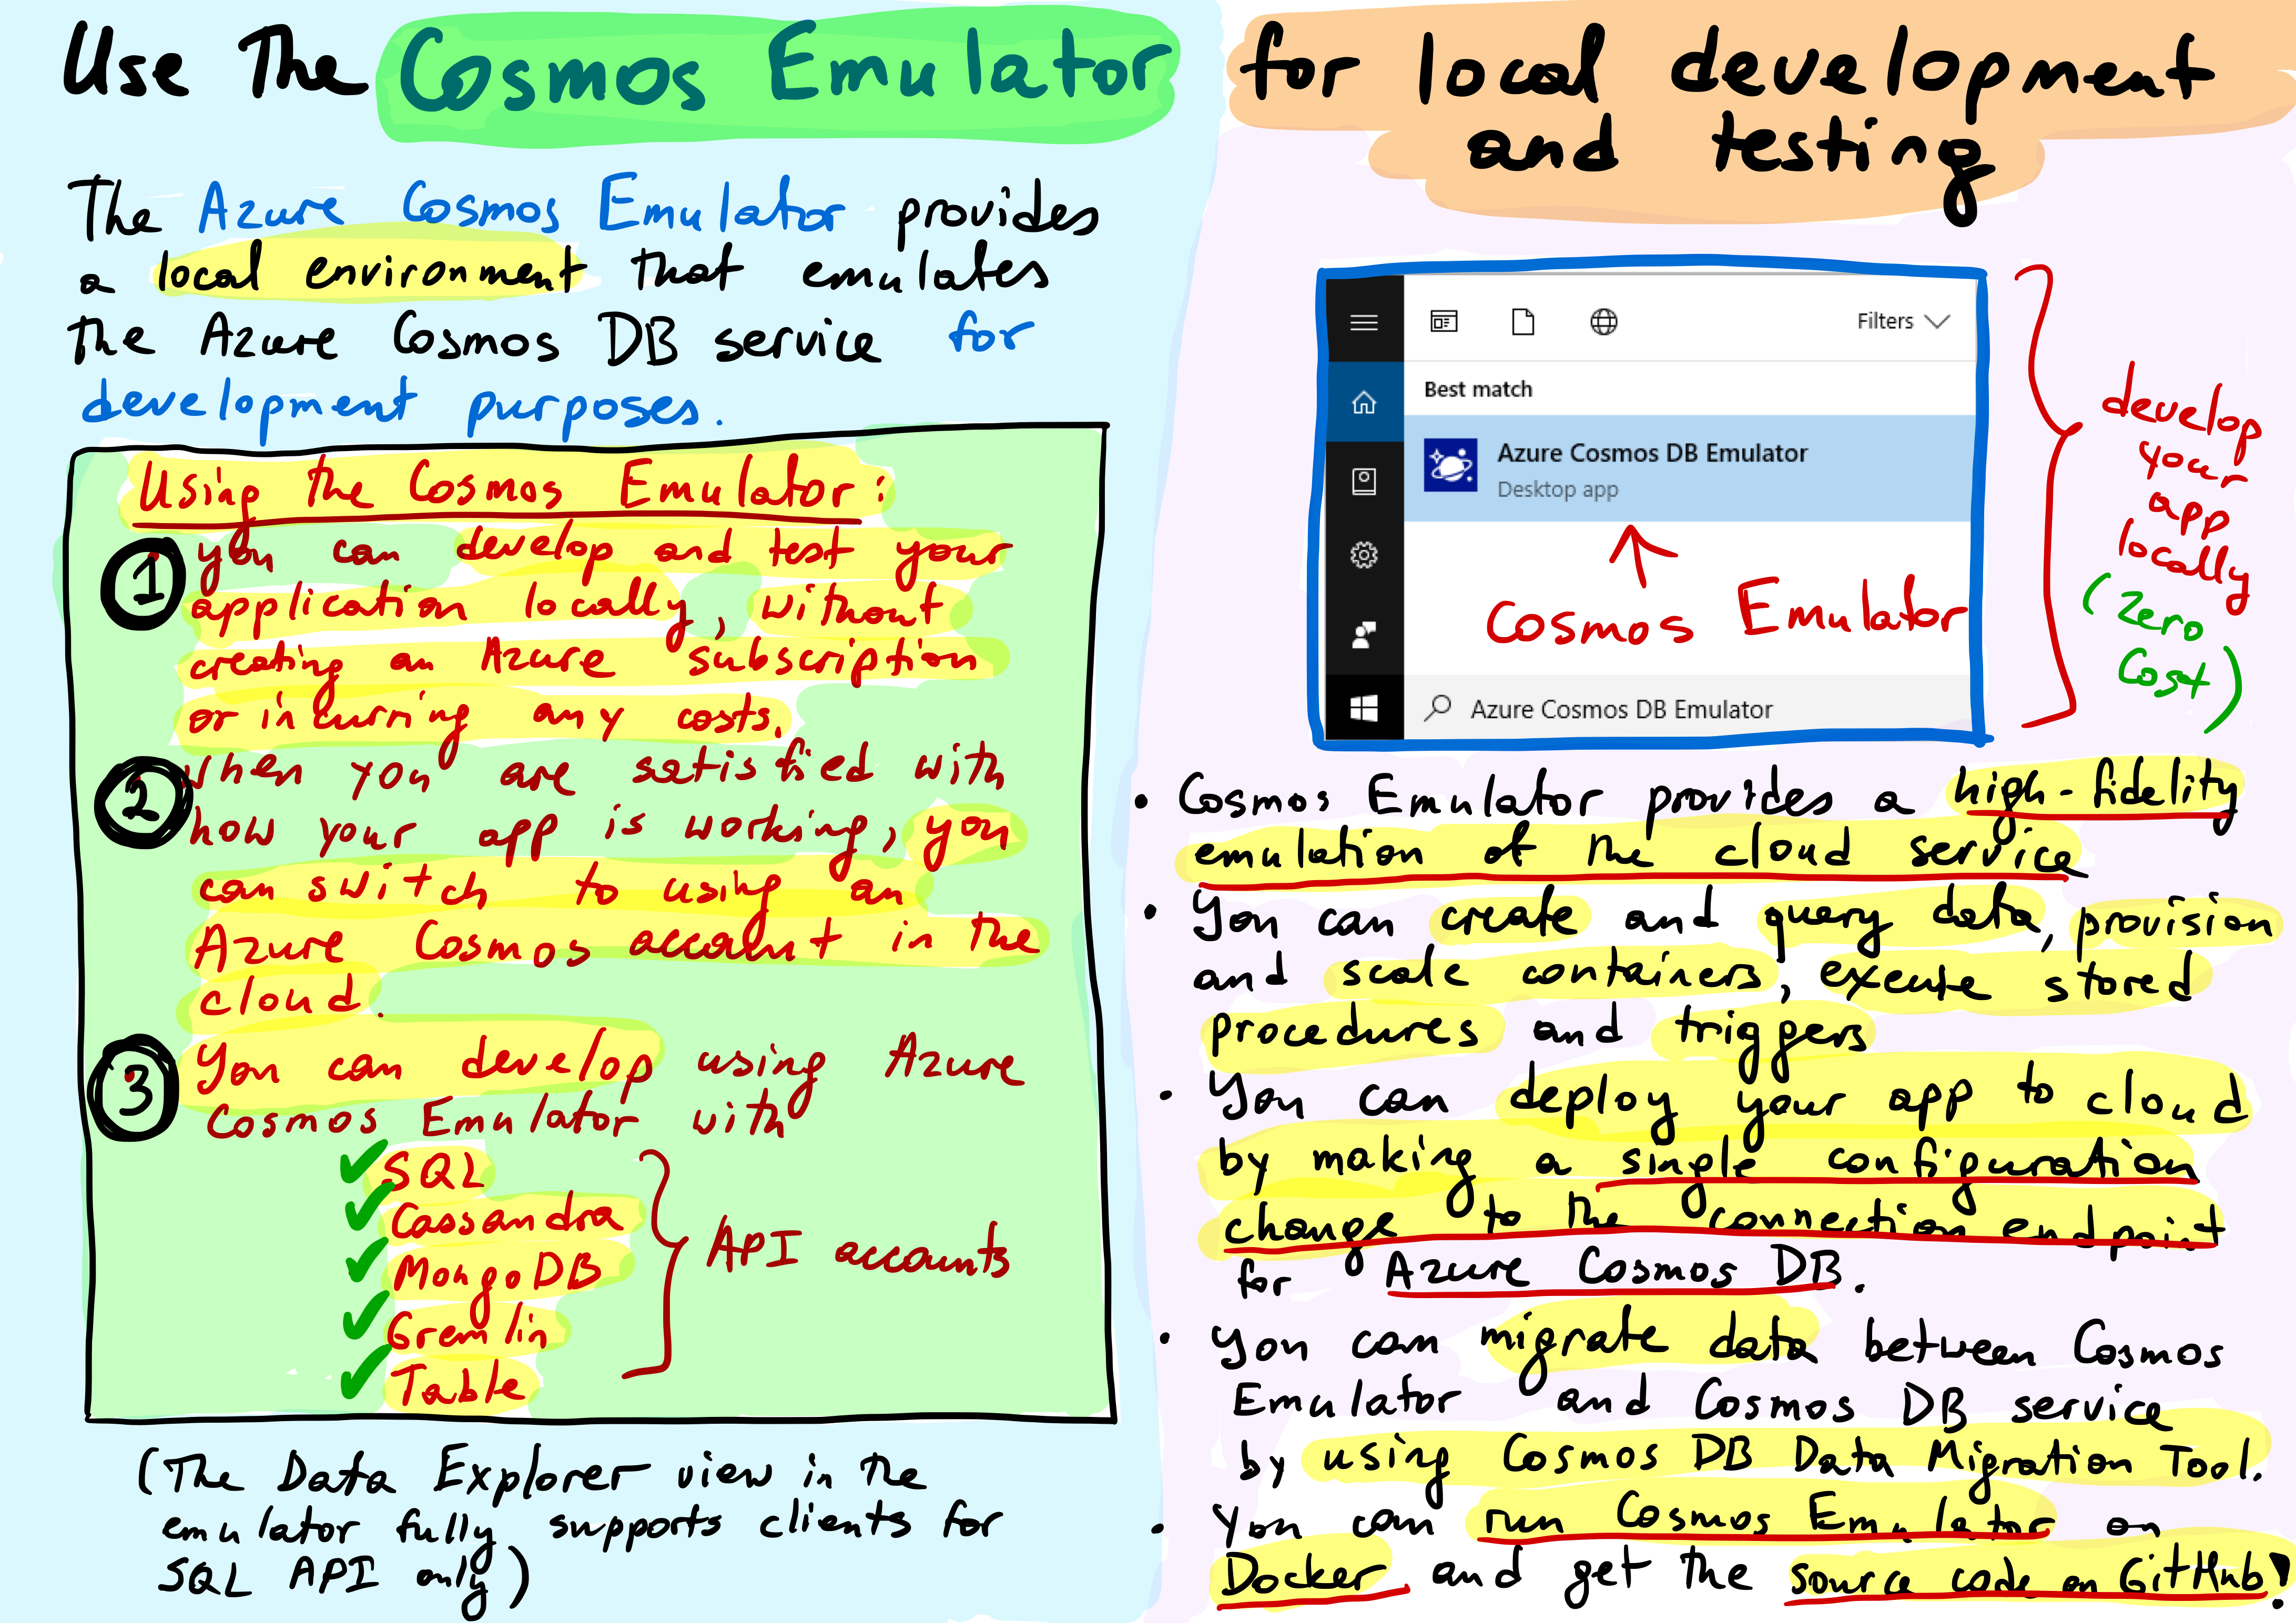 Use The Cosmos Emulator for local development
and testing
The Azure Cosmos Emulator provides
a local environment that emulates
the Azure Cosmos DB service for
development purposes.
Using the Cosmos Emulator:
1 you can develop and test your
application locally, without
creating an Azure subscription
or incurring any costs.
2 when you are satisfied with
how your app is working, you
can switch to using an
Azure Cosmos account in the
cloud.
3 You can develop using Azure
Cosmos Emulator with
SQL
Cassandra
MongoDB
Gremlin
Table
API accounts
(The Data Explorer view in the
emulator fully supports clients for
SQL API only)
Filters
Best match
Azure Cosmos DB Emulator
Desktop app
Cosmos Emulator
Azure Cosmos DB Emulator
develop
your
app
locally
(Zero
Cost)
• Cosmos Emulator provides a high-fidelity
emulation of the cloud service
• You can create and query data, provision
and scale containers, execute stored
procedures and triggers
• You can deploy your app to cloud
by making a single configuration
change to the connection endpoint
for Azure Cosmos DB.
• You can migrate data between Cosmos
Emulator and Cosmos DB service
by using Cosmos DB Data Migration Tool.
• You can run Cosmos Emulator on
Docker and get the source code on GitHub!